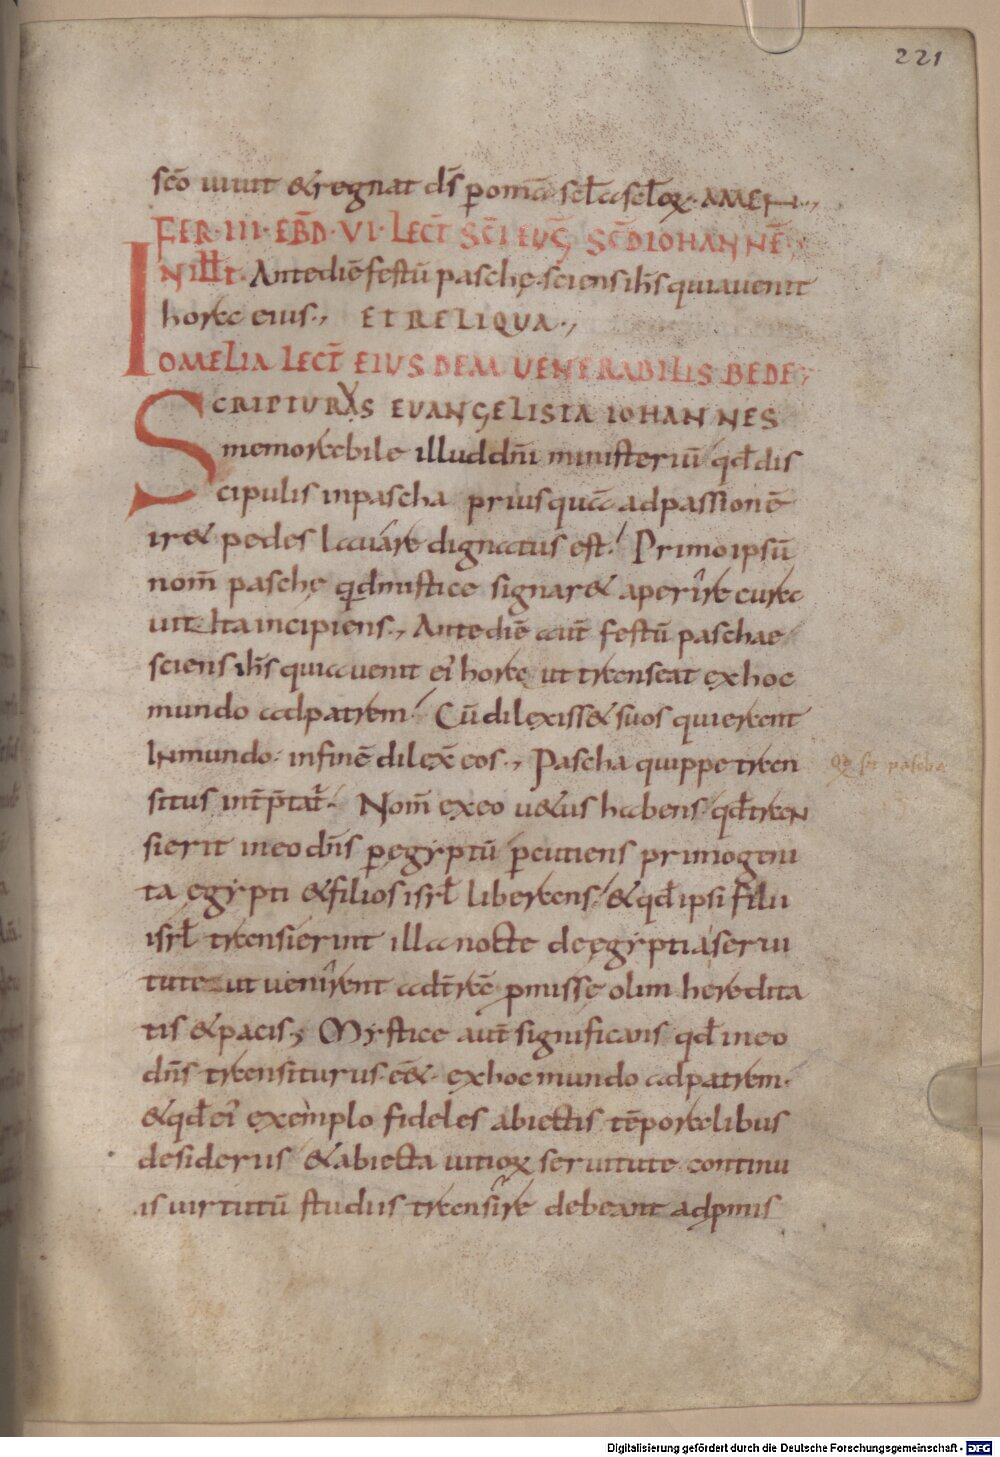 221
scō uiuit &regnat dſ̄ p omīa sc̄la sc̄loꝝ. AMEN.,
FER·III·EBD̄·VI·LECT̄ SC̄I EUG̅ SC̄DIOHANNĒ;
IN ILLT. Antediē festū paschę sciens ih̄s quiauenit
hora eius., ETRELIQUA.,
OMELIA LECT̄ EIUSDEM UENERABILIS BEDE;
SCRIPTURUS EUANGELISTA IOHANNES
memorabile illud dn̄i ministeriū qđ dis
cipulis inpascha priusquā adpassionē
ir& pedes lauare dignatus est. Primo ipsū
nom̄ paschę qđ mistice signar& aperire cura
uit. Ita incipiens., Antediē aut̄ festū paschae
sciens ih̄s quia uenit ei hora ut transeat exhoc
mundo adpatrem. Cū dilexiss& suos qui erant
Inmundo. infinē dilex̄ eos., Pascha quippe tran
situs int̄p̄tat̄. Nom̄ exeo u&us habens qđ tran
sierit ineo dn̄s p egyptū pcutiens primogeni
ta egypti &filios isrł liberans. &qđ ipsi filii
isrł transierint illa nocte de egyptia serui
tute. ut uenirent ad t̄rā pmissę olim heredita
tis &pacis; Mystice aut̄ significans qđ ineo
dn̄s transiturus ē&. exhoc mundo adpatrem.
&qđ ei exemplo fideles abiectis tēporalibus
desideriis &abiecta uitioꝝ seruitute continu
is uirtutū studiis transire debeant adpmis
Qđ sit pascha
Digitalisierung gefördert durch die Deutsche Forschungsgemeinschaft - DFG